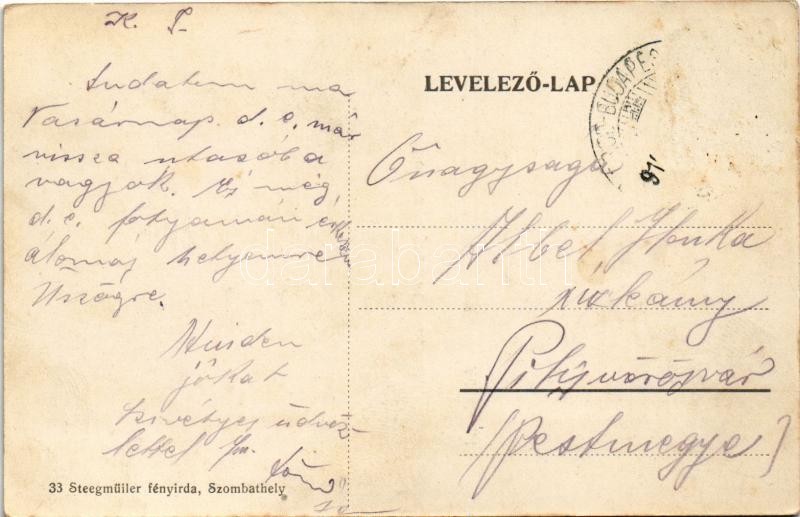 K. I.
Tudatom ma
Vasárnap d. e. már
vissza utazóba
vagyok. Ez még
d. e. folyamán
állomás helyemre
Minden
jókat
szívélyes üdvöz
lettel
33 Steegmüller fényirda, Szombathely
LEVELEZŐ-LAP
BUDAPES
91
Őnagysága
Abel Ilonka
Pilisvörösvár
(Pestmegye)
darabanth